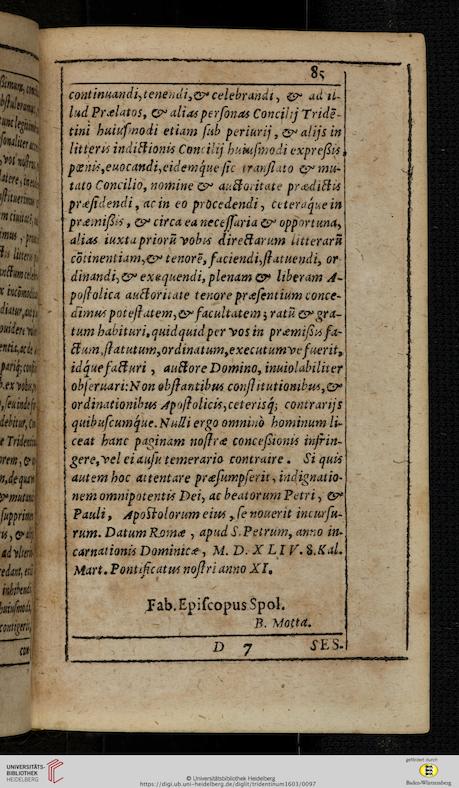 85
continuandi, tenendi, & celebrandi, & ad il-
lud Prælatos, & alias personas Concilij Tridẽ-
tini huiusmodi etiam sub periurij, & alijs in
litteris indictionis Concilij huiusmodi expreßis,
pœnis, euocandi, eidemq́ue sic translato & mu-
tato Concilio, nomine & auctoritate prædictis
præsidendi, ac in eo procedendi, ceteraq́ue in
præmißis, & circa ea necessaria & opportuna,
alias iuxta priorũ vobis directarum litterarũ
cõtinentiam, & tenorẽ, faciendi, statuendi, or
dinandi, & exequendi, plenam & liberam A-
postolica auctoritate tenore præsentium conce-
dimus potestatem, & facultatem; ratũ & gra-
tum habituri, quidquid per vos in præmißis fa-
ctum, statutum, ordinatum, executumve fuerit,
idq́ue facturi, auctore Domino, inuiolabiliter
obseruari: Non obstantibus constitutionibus, &
ordinationibus Apostolicis, ceterisq́; contrarijs
quibuscumq́ue. Nulli ergo omninò hominum li-
ceat hanc paginam nostræ concessionis infrin-
gere, vel ei ausu temerario contraire. Si quis
autem hoc attentare præsumpserit, indignatio-
nem omnipotentis Dei, ac beatorum Petri, &
Pauli, Apostolorum eius, se nouerit incursu-
rum. Datum Romæ, apud S. Petrum, anno in-
carnationis Dominicæ, M. D. XLIV. 8. Kal.
Mart. Pontificatus nostri anno XI.
Fab. Episcopus Spol.
B. Motta.
D 7 SES-
UNIVERSITÄTS-
BIBLIOTHEK
HEIDELBERG
© Universitätsbibliothek Heidelberg
https://digi.ub.uni-heidelberg.de/diglit/tridentinum1603/0097
gefördert durch
Baden-Württemberg